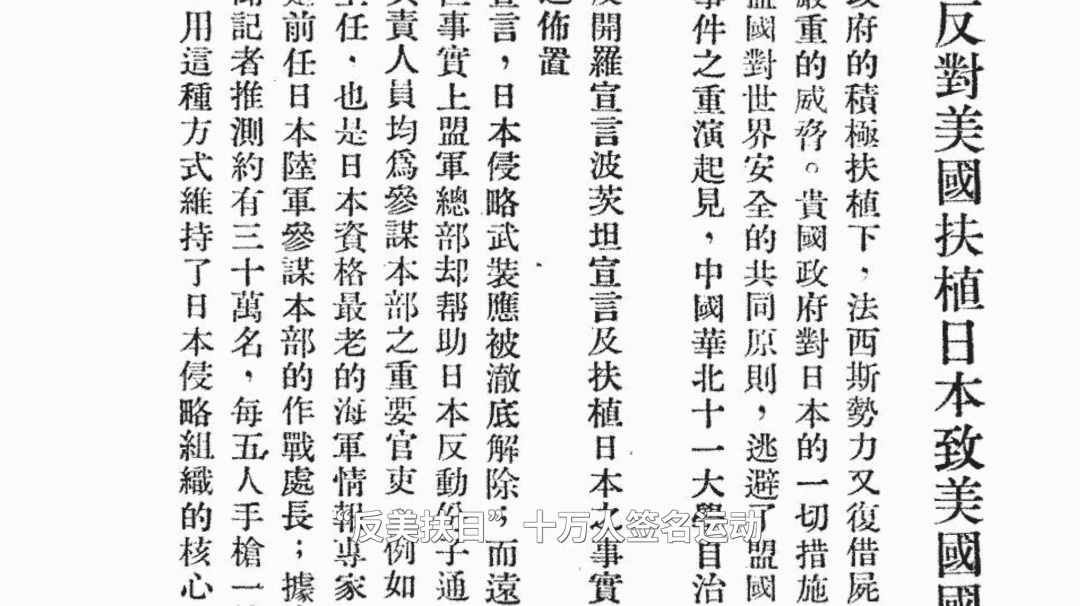 反對美國扶植日本致美國國
政府的積極扶植下，法西斯勢力又復借屍
嚴重的威脅。貴國政府對日本的一切措施
盟國對世界安全的共同原則，逃避了盟國
事件之重演起見，中國華北十一大學自治
反開羅宣言波茨坦宣言及扶植日本之事實
佈置
宣言，日本侵略武裝應被澈底解除；而遠
事實上盟軍總部却帮助日本反動份子通
責人員均爲參謀本部之重要官吏，例如
主任，也是日本資格最老的海軍情報專家
是前任日本陸軍參謀本部的作戰處長；據
聞記者推測約有三十萬名，每五人手槍一
用這種方式維持了日本侵略組織的核心
“反美扶日”十万人签名运动